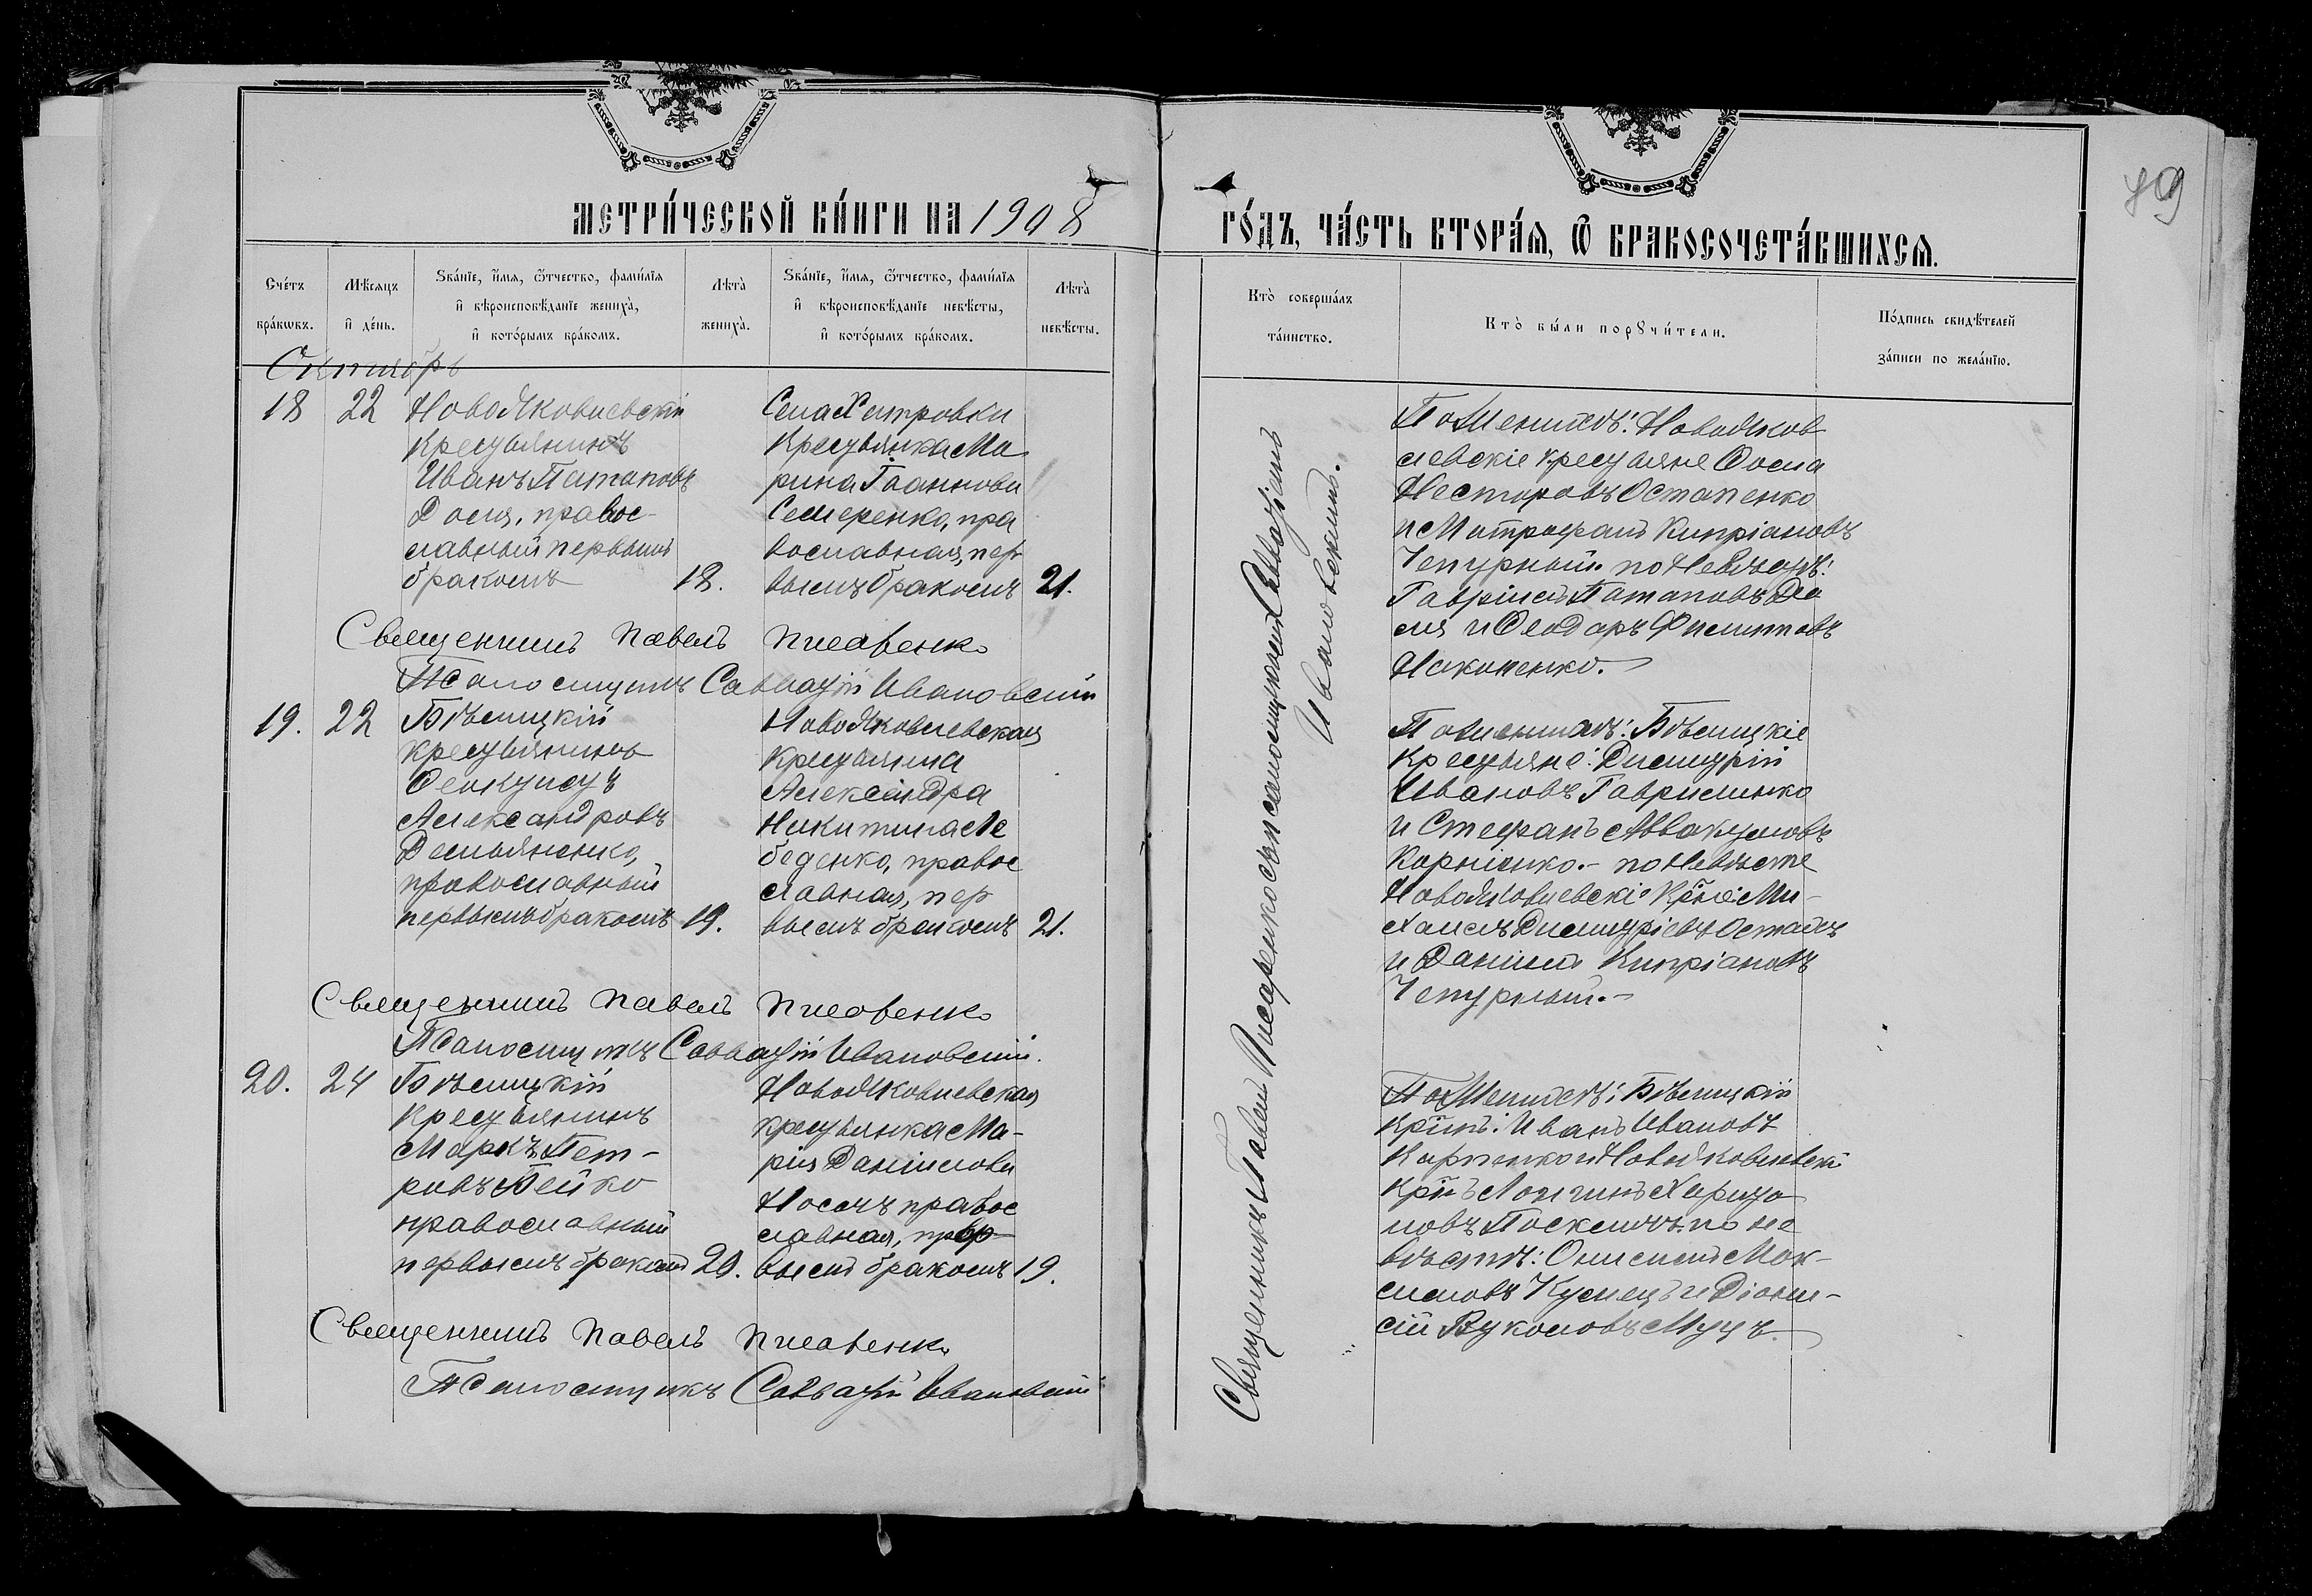 МЕТРИ́ЧЕСКОЙ КНИ́ГИ НА 1908
Сче́тъ бра́кѡвъ.
Мѣ́сяцъ и҆ де́нь.
Ѕва́нїе, и҆́мѧ, ѻ҆́тчество, фами́лїѧ и҆ вѣроисповѣ́данїе жениха̀, и҆ кото́рымъ бра́комъ.
Лѣ́та̀ жениха̀.
Ѕва́нїе, и҆́мѧ, ѻ҆́тчество, фами́лїѧ и҆ вѣроисповѣ́данїе невѣ́сты, и҆ кото́рымъ бра́комъ.
Лѣ́та̀ невѣ́сты.
Октябрь
18
22
НовоЯковлевскій
крестьянинъ
Иванъ Патаповъ
правос-
лавный первымъ
бракомъ
18.
Села Хитровки
крестьянка Ма
рина Іоаннова
Семеренко, пра
вославная, пер
вымъ бракомъ
21.
Священникъ Павелъ Писаренко
Псаломщикъ Савватій Ивановскій
19.
22
Бѣлицкій
крестьянинъ
Александровъ
Демьяненко,
православный
первымъ бракомъ
19.
НовоЯковлевская
крестьянка
Александра
Никитина Ле
беденко, правос
лавная, пер
вымъ бракомъ
21.
Священникъ Павелъ Писаренко
Псаломщикъ Савватій Ивановскій.
20.
24
Бѣлицкій
крестьянинъ
Маркъ Пет-
ровъ Бейко
православный
первымъ бракомъ
20.
НовоЯковлевская
крестьянка Ма-
рія Даніилова
Носачъ правос
лавная, пер
вымъ бракомъ
19.
Священникъ Павелъ Писаренко
Псаломщикъ Савватій Ивановскій
ГО́ДЪ, ЧА́СТЬ ВТОРА́Ѧ, Ѽ БРАКОСОЧЕТА́ВШИХСѦ.
79
Кто̀ соверша́лъ та́инство.
Кто̀ бы́ли порꙋчи́тели.
По́дпись свидѣ́телей за́писи по жела́нїю.
Священникъ Павелъ Писаренко съ псаломщикомъ Савватіемъ
Ивановскимъ.
По Женихѣ: НовоЯков
левскіе крестьяне Фома
Несторовъ Остапенко
и Митрофанъ Кипріановъ
Чепурный. по Невѣстѣ:
Гавріилъ Патаповъ
и Феодоръ Филиповъ
Наконенко.
По Женихѣ: Бѣлицкіе
крестьяне: Димитрій
Ивановъ Гавриленко
и Стефанъ Аввакумовъ
Корніенко.- по Невѣсте
НовоЯковлевскіе Кр̃не: Ми-
хаилъ Димитріевъ
и Даніилъ Кипріановъ
Чепурный.-
По Женихѣ: Бѣлицкій
Кр̃нъ: Иванъ Ивановъ
Карпенко и НовоЯковлевскій
Кр̃нъ Логинъ Харито
новъ по не
вѣстѣ: Мак-
симовъ Кузнецъ и Діони-
сій Вуколовъ Муцъ.